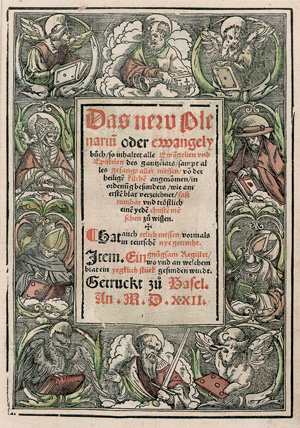 Das new Ple
nariū oder ewangely
bůch / so inhaltet alle Ewāgelien vnd
Epistelen des gantzē iars / sampt al
les gesangs aller messen / vō der
heiligē kilchē angenōmen / in
ordenūg besunders / wie am
erstē blat verzeichnet / fast
nutzbar vnd tröstlich
einē yedē christē mē
schen zů wissen.
✠
Hat auch messen / vormals
in teutsche nye getruckt.
Item. Ein gnůgsam Register /
wo vnd an welchem
blat ein yegklich stück gefunden wurdt.
Getruckt zů Basel.
An. M. D. XXII.